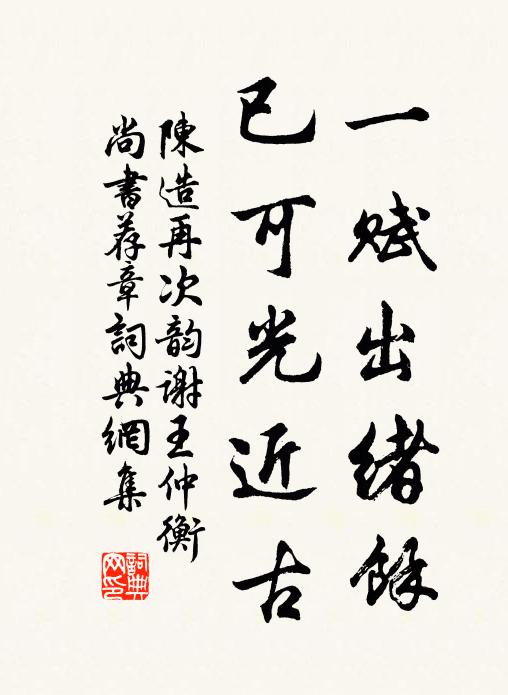 一赋出绪馀
已可光近古
陳造再次韵谢王仲衡
尚書荐章詞典網集
詞典网印